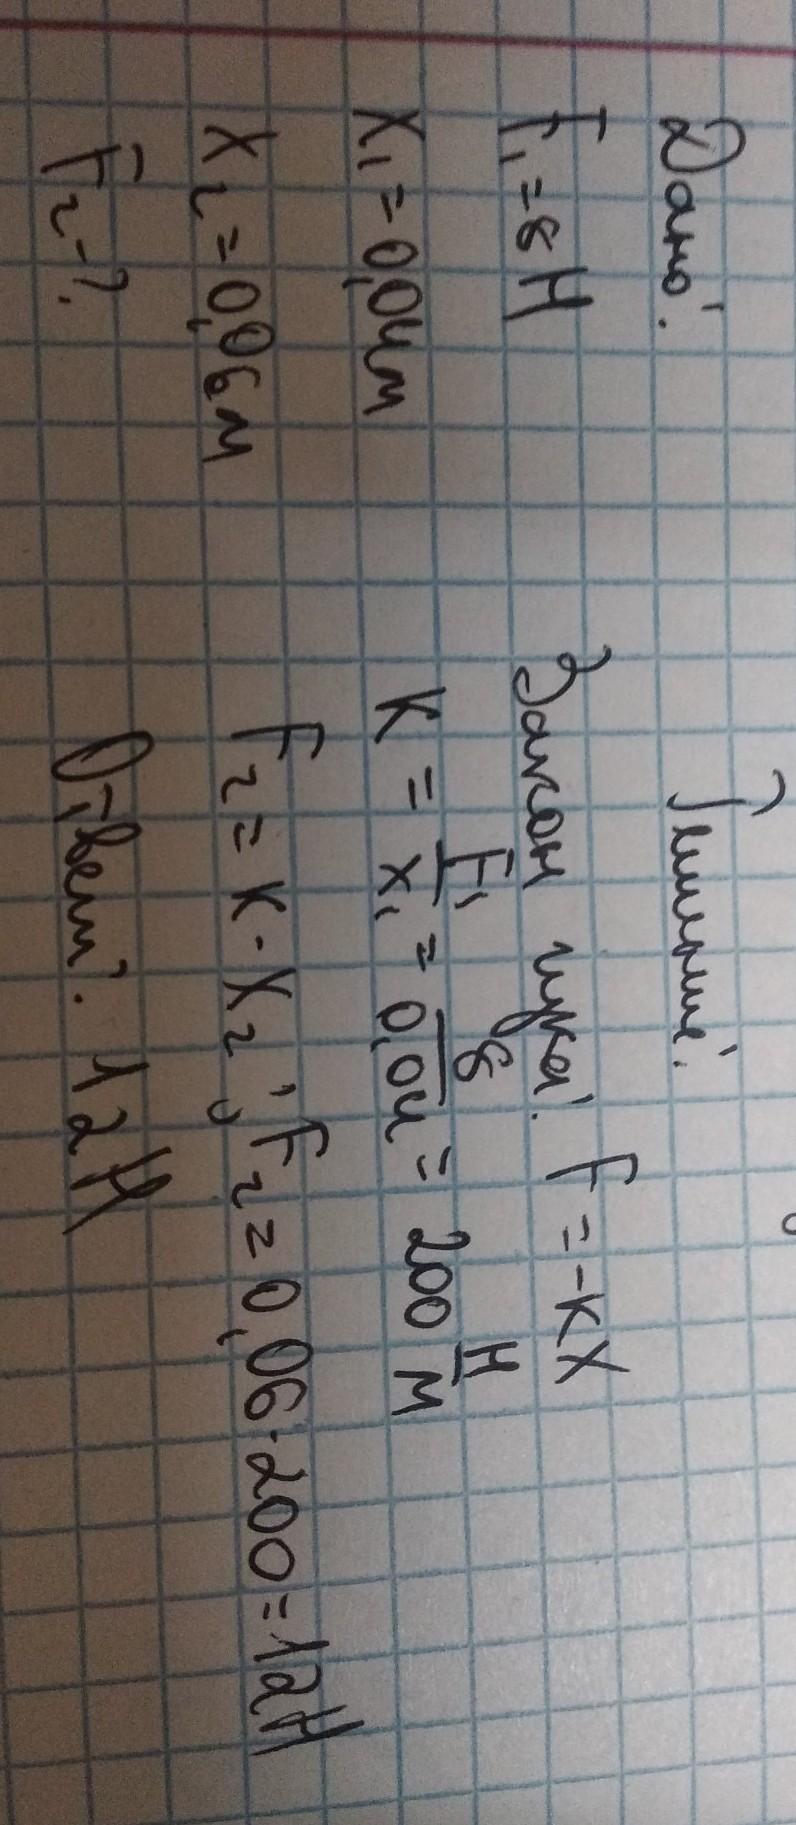 Дано:
F₁=8Н
X₁=0,04м
X₂=0,06м
F₂-?
Решение:
Закон гука: F=-KX
K = F₁/X₁ = 8/0,04 = 200 Н/м
F₂=K·X₂; F₂=0,06·200=12Н
Ответ: 12Н